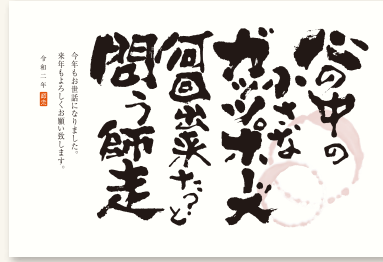 心の中の
小さな
ガッツポーズ
何回出来た?と
問う師走
今年もお世話になりました。
来年もよろしくお願い致します。
令和二年 師走